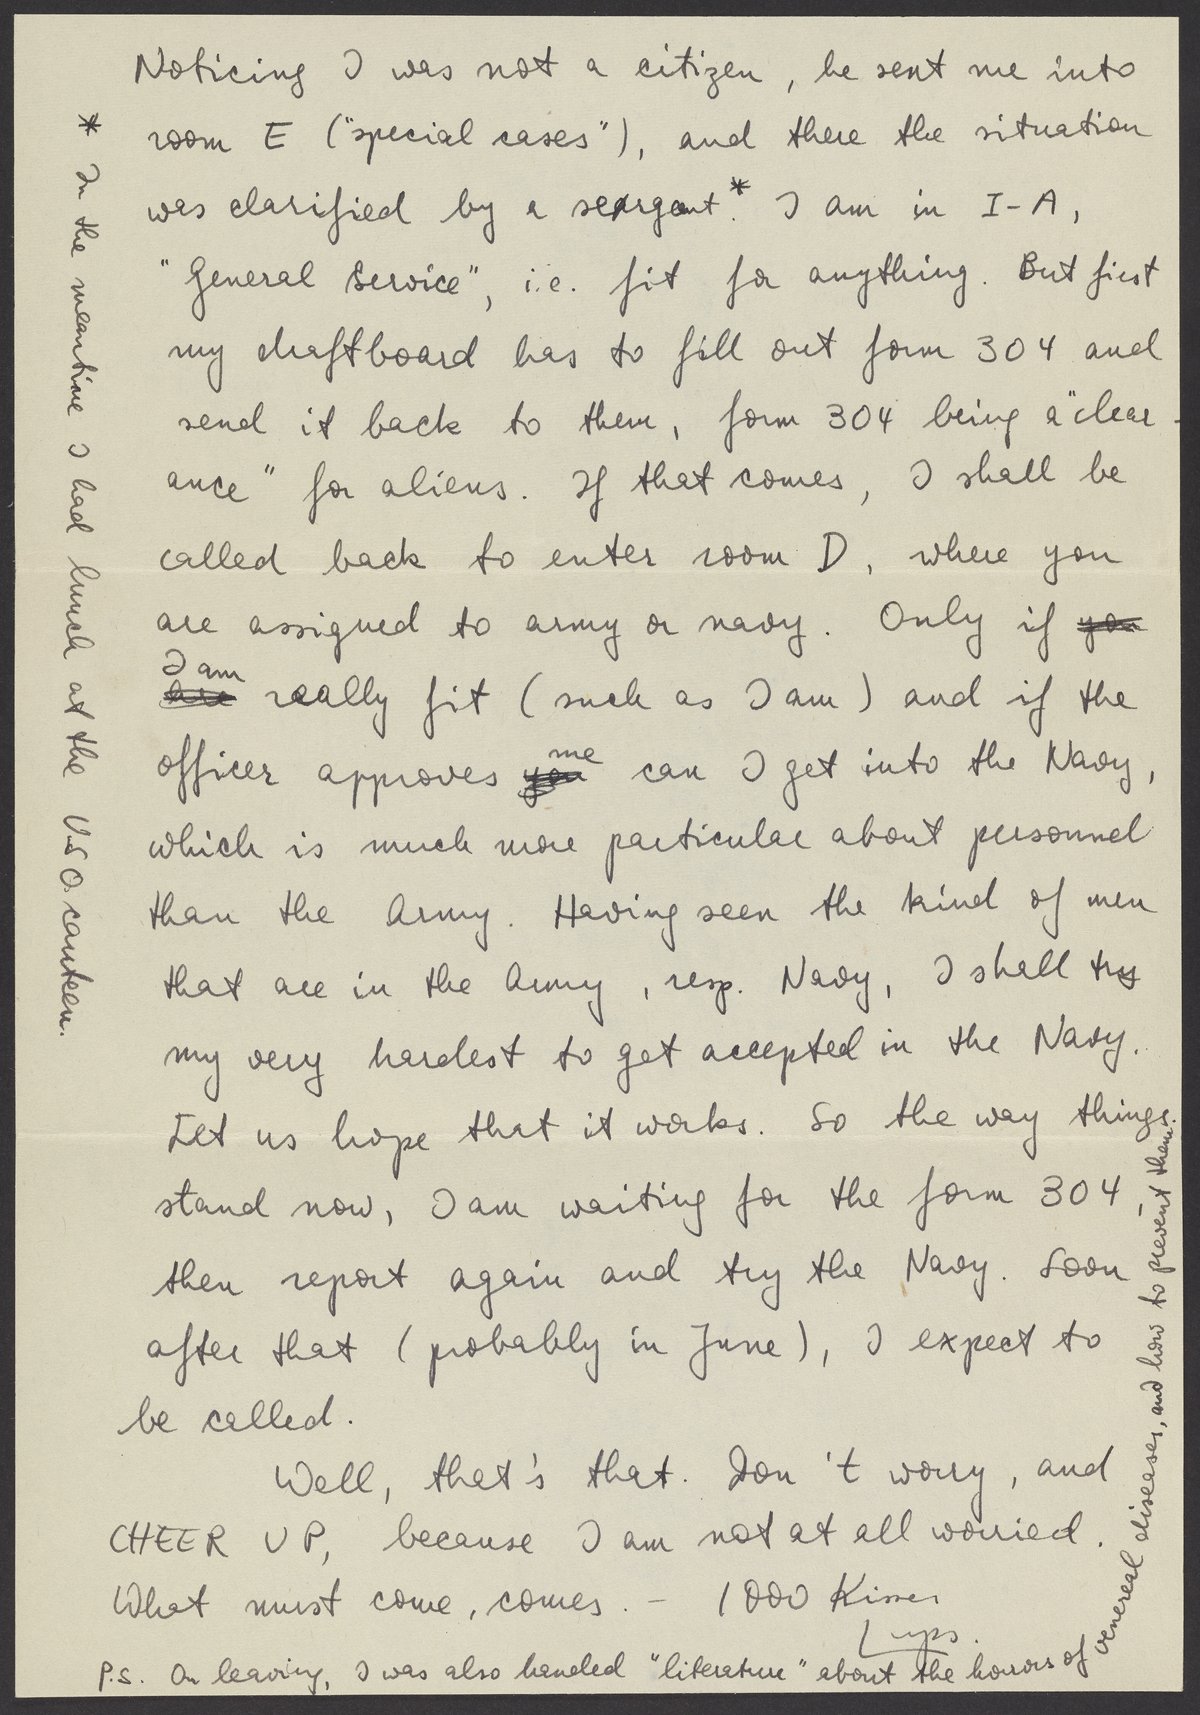 Noticing I was not a citizen, he sent me into
room E ("special cases"), and there the situation
was clarified by a sergant.* I am in I-A,
"General Service", i.e. fit for anything. But first
my draftboard has to fill out form 304 and
send it back to them, form 304 being a "clear-
ance" for aliens. If that comes, I shall be
called back to enter room D, where you
are assigned to army or navy. Only if you
I am
are really fit (such as I am) and if the
me
officer approves you can I get into the Navy,
which is much more particular about personnel
than the Army. Having seen the kind of men
that are in the Army, resp. Navy, I shall try
my very hardest to get accepted in the Navy.
Let us hope that it works. So the way things
stand now, I am waiting for the form 304,
then report again and try the Navy. Soon
after that (probably in June), I expect to
be called.
Well, that's that. Don't worry, and
CHEER UP, because I am not at all worried.
What must come, comes. - 1000 Kisses
P.S. On leaving, I was also handed "literature" about the horrors of venereal diseases, and how to prevent them.
* In the meantime I had lunch at the USO. canteen.